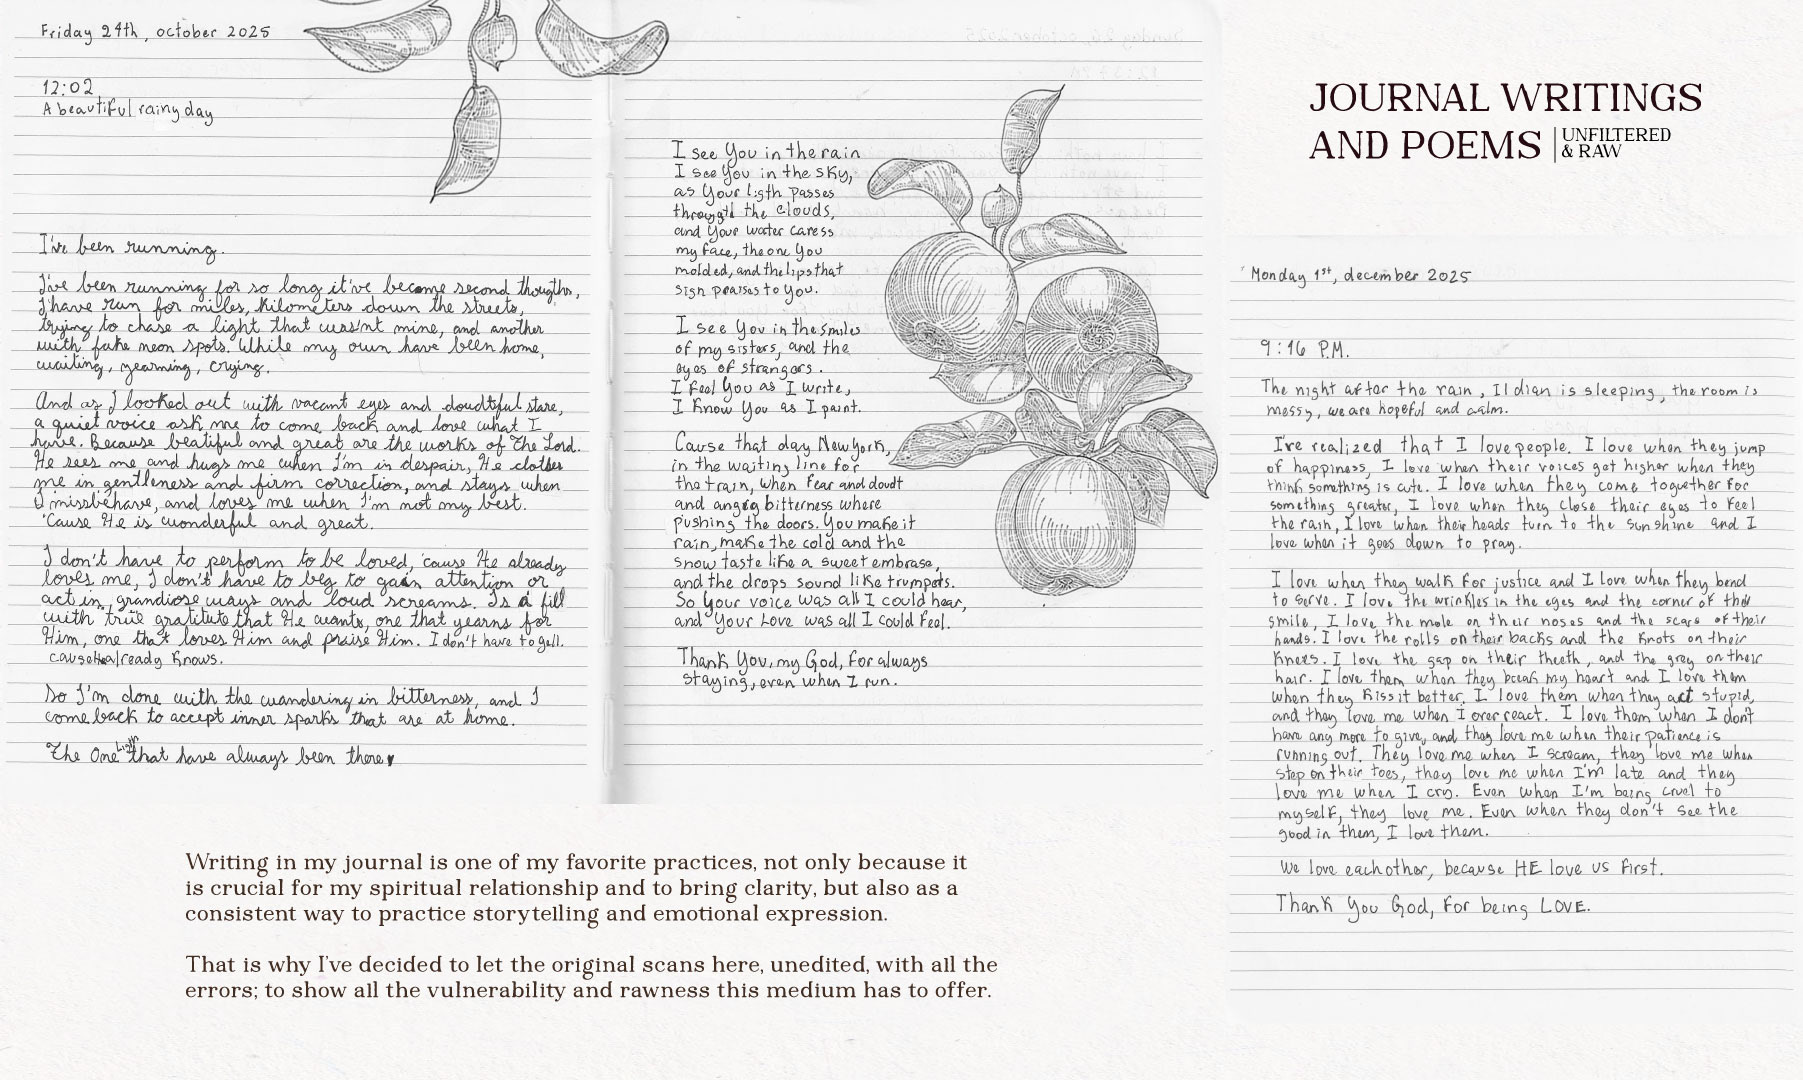 Friday 24th, october 2025
12:02
A beautiful rainy day
I've been running.
I've been running for so long it've become second thougths,
I have run for miles, kilometers down the streets,
trying to chase a light that wasn't mine, and another
with fake neon spots. While my own have been home,
waiting, yearning, crying.
And as I looked out with vacant eyes and doudtful stare,
a quiet voice ask me to come back and love what I
have. Because beatiful and great are the works of The Lord.
He sees me and hugs me when I'm in despair, He clothes
me in gentleness and firm correction, and stays when
I missbehave, and loves me when I'm not my best.
'Cause He is wonderful and great.
I don't have to perform to be loved, 'cause He already
loves me, I don't have to beg to gain attention or
act in grandiose ways and loud screams. Is a fill
with true gratitute that He wants, one that yearns for
Him, one that loves Him and praise Him. I don't have to yell.
cause He already knows.
So I'm done with the wandering in bitterness, and I
come back to accept inner sparks that are at home.
The One Ligth that have always been there
I see You in the rain
I see You in the sky,
as Your ligth passes
througth the clouds,
and Your water caress
my face, the one You
molded, and the lips that
sign praises to You.
I see You in the smiles
of my sisters, and the
eyes of strangers.
I feel You as I write,
I know You as I paint.
Cause that day New York,
in the waiting line for
the train, when fear and doudt
and angry bitterness where
pushing the doors. You make it
rain, make the cold and the
snow taste like a sweet embrase,
and the drops sound like trumpets.
So Your voice was all I could hear,
and Your Love was all I could feel.
Thank You, my God, for always
staying, even when I run.
JOURNAL WRITINGS
AND POEMS | UNFILTERED
& RAW
Monday 1st, december 2025
9:16 P.M.
The night after the rain, Ildian is sleeping, the room is
messy, we are hopeful and calm.
I've realized that I love people. I love when they jump
of happiness, I love when their voices get higher when they
think something is cute. I love when they come toguether for
something greater, I love when they close their eyes to feel
the rain, I love when their heads turn to the sunshine and I
love when it goes down to pray.
I love when they walk for justice and I love when they bend
to serve. I love the wrinkles in the eyes and the corner of their
smile, I love the mole on their noses and the scars of their
hands. I love the rolls on their backs and the knots on their
knees. I love the gap on their theeth, and the grey on their
hair. I love them when they break my heart and I love them
when they kiss it better. I love them when they act stupid,
and they love me when I overreact. I love them when I don't
have any more to give, and they love me when their patience is
running out. They love me when I scream, they love me when
step on their toes, they love me when I'm late and they
love me when I cry. Even when I'm being cruel to
myself, they love me. Even when they don't see the
good in them, I love them.
We love eachother, because HE love us first.
Thank You God, for being LOVE.
Writing in my journal is one of my favorite practices, not only because it
is crucial for my spiritual relationship and to bring clarity, but also as a
consistent way to practice storytelling and emotional expression.
That is why I've decided to let the original scans here, unedited, with all the
errors; to show all the vulnerability and rawness this medium has to offer.